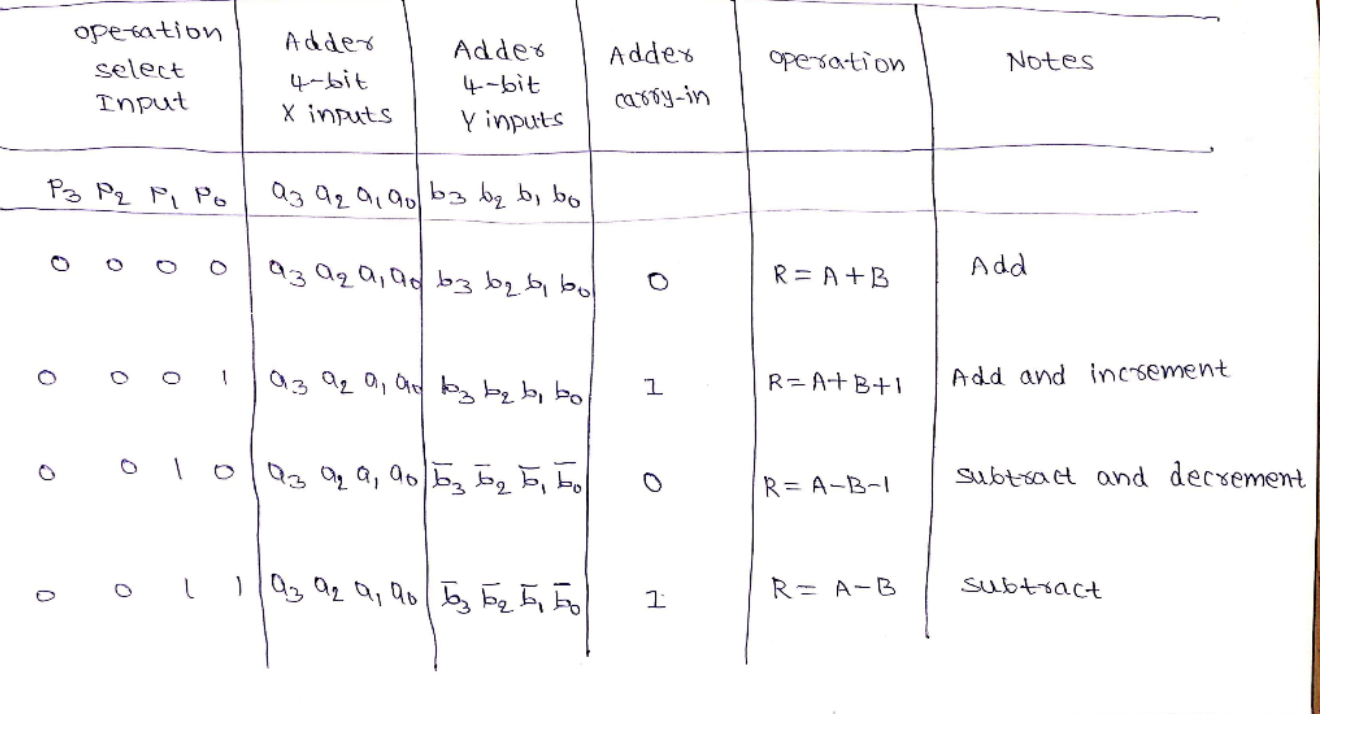 operation select Input | Adder 4-bit X inputs | Adder 4-bit Y inputs | Adder carry-in | operation | Notes
P3 P2 P1 P0 | a3 a2 a1 a0 | b3 b2 b1 b0
0 0 0 0 | a3 a2 a1 a0 | b3 b2 b1 b0 | 0 | R = A + B | Add
0 0 0 1 | a3 a2 a1 a0 | b3 b2 b1 b0 | 1 | R = A + B + 1 | Add and increment
0 0 1 0 | a3 a2 a1 a0 | b̅3 b̅2 b̅1 b̅0 | 0 | R = A-B-1 | subtract and decrement
0 0 1 1 | a3 a2 a1 a0 | b̅3 b̅2 b̅1 b̅0 | 1 | R = A-B | subtract